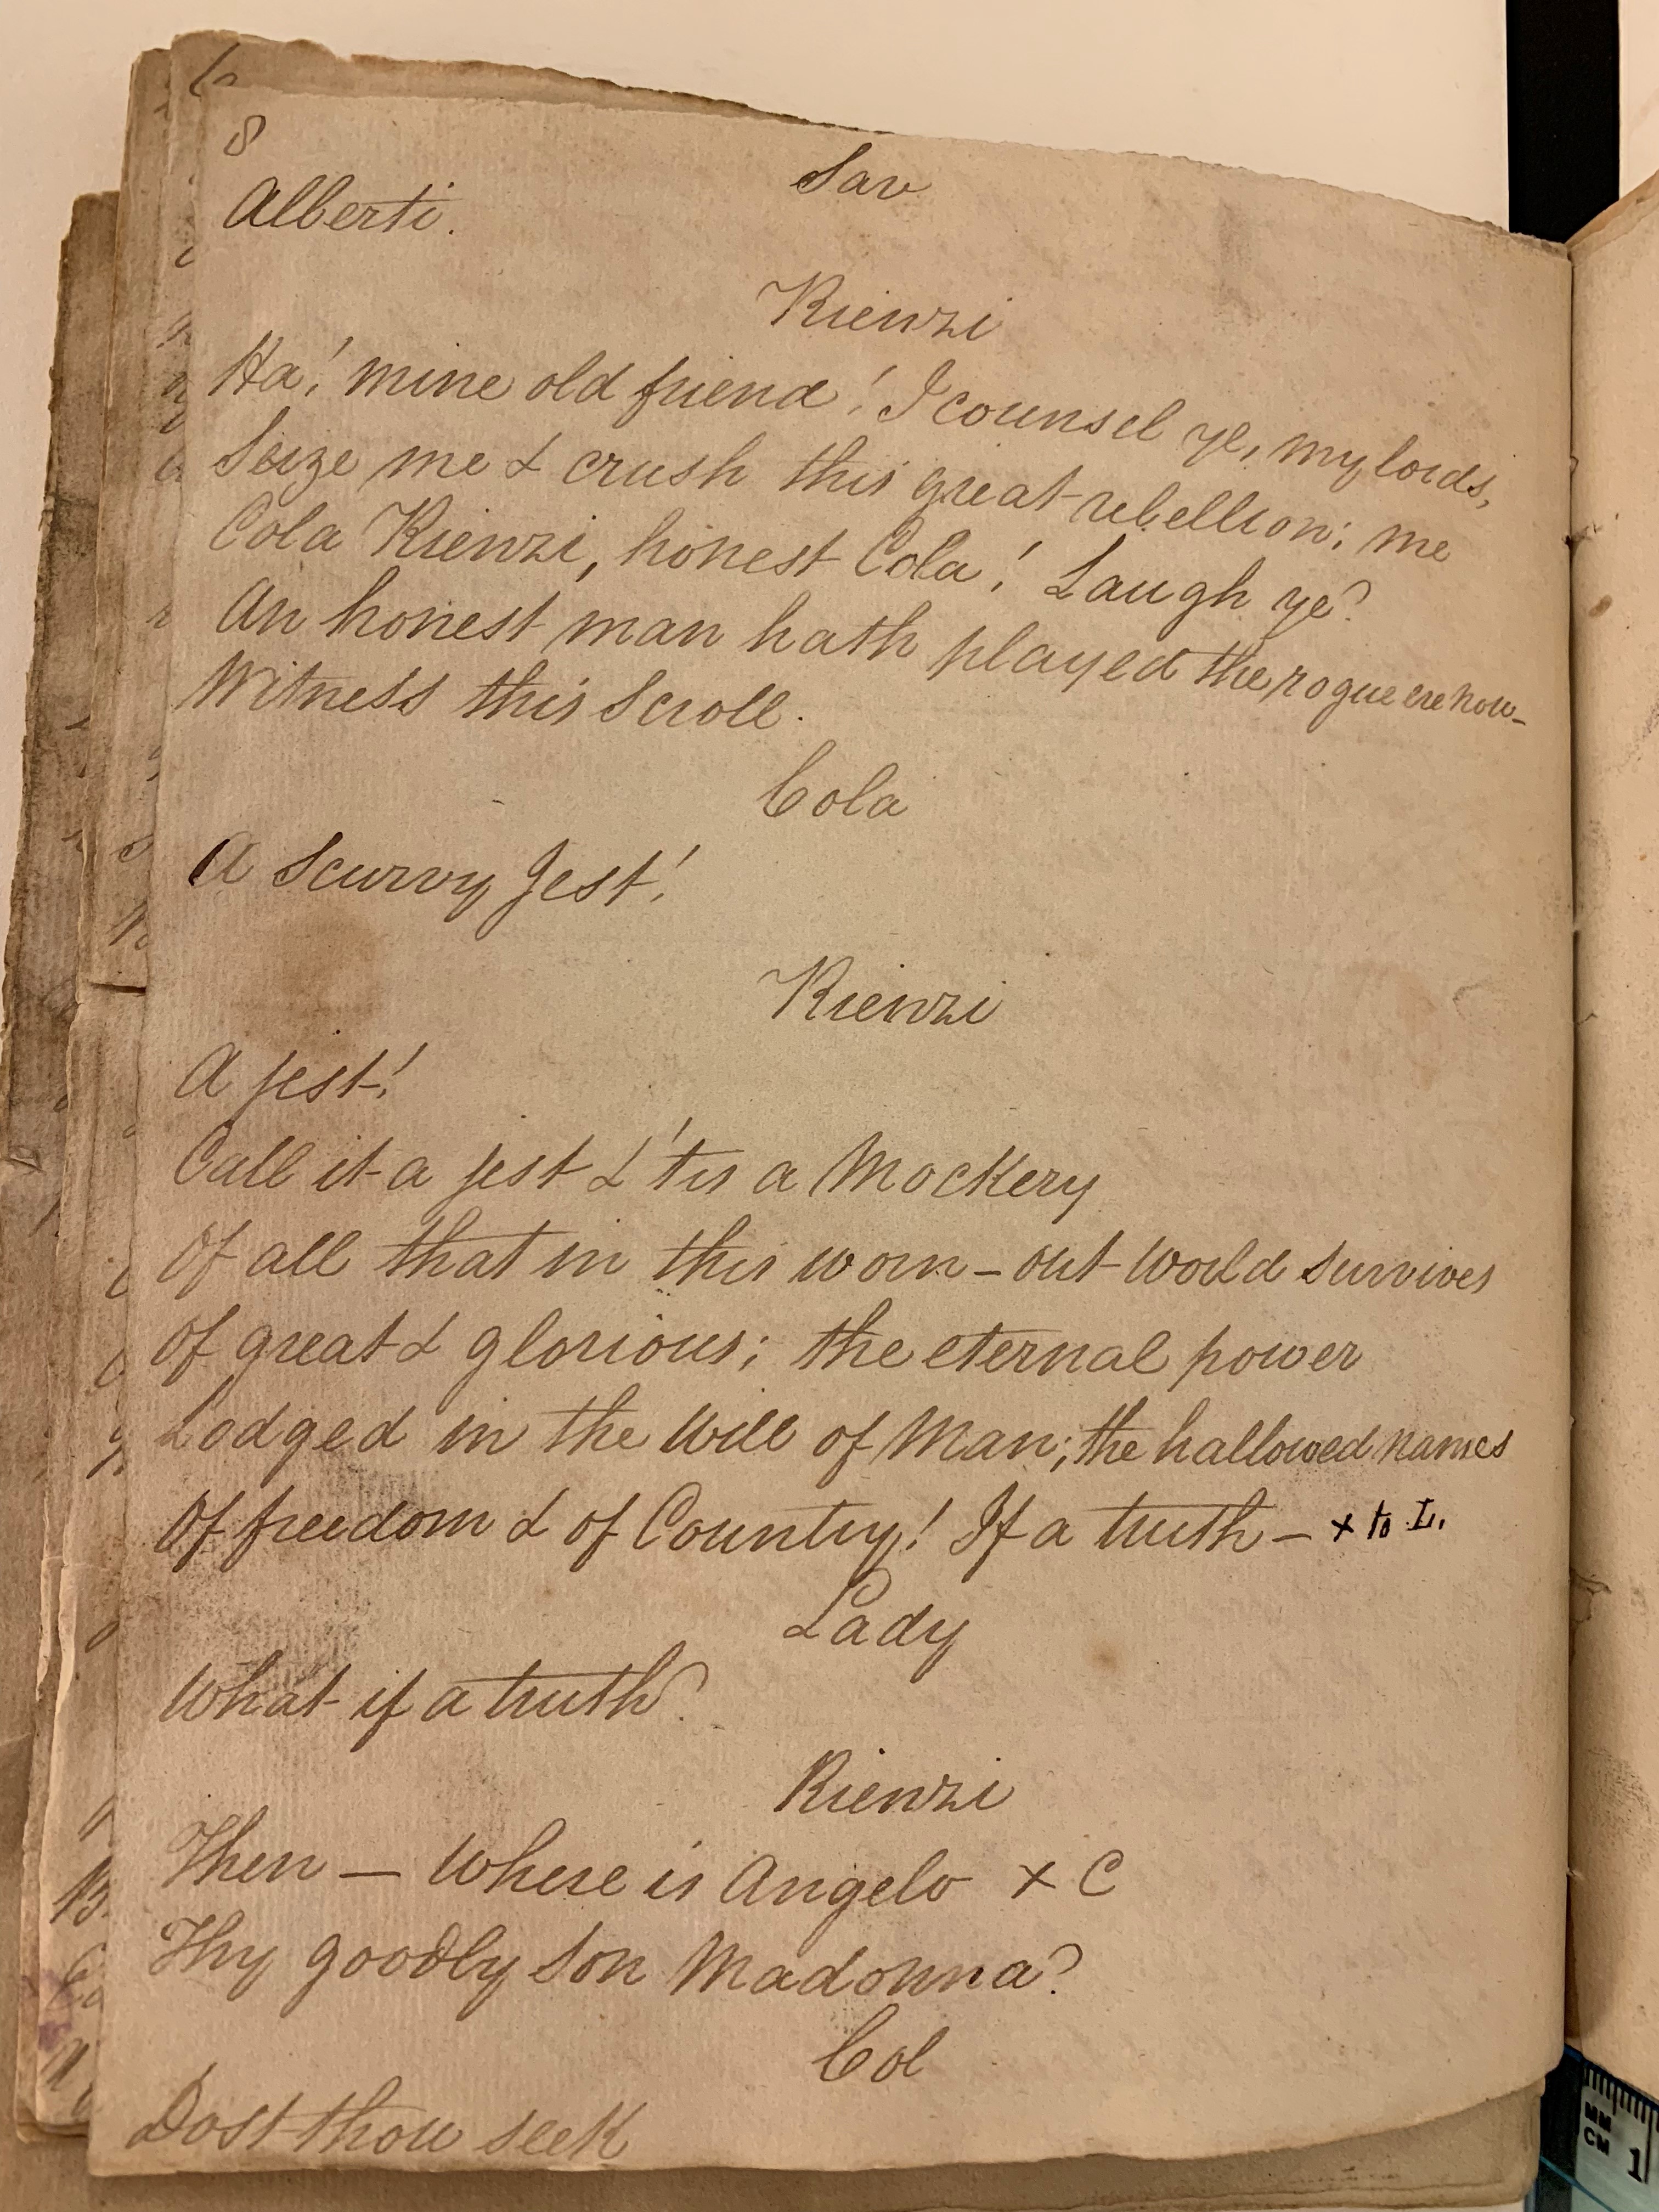 8
Sav
Alberti.
Rienzi
Ha! mine old friend! I counsel ye, my lords,
Seize me & crush this great rebellion; me
Cola Rienzi, honest Cola! Laugh ye?
An honest man hath played the rogue ere now—
Witness this Scroll.
Cola
A Scurvy Jest!
Rienzi
A jest!
Call it a jest & 'tis a Mockery
Of all that in this worn-out World survives
Of great & glorious; the eternal power
Lodged in the Will of Man; the hallowed names
Of freedom & of Country! If a truth — x to L.
Lady
What if a truth?
Rienzi
Then — Where is Angelo x C
Thy goodly Son Madonna?
Col
Dost thou seek